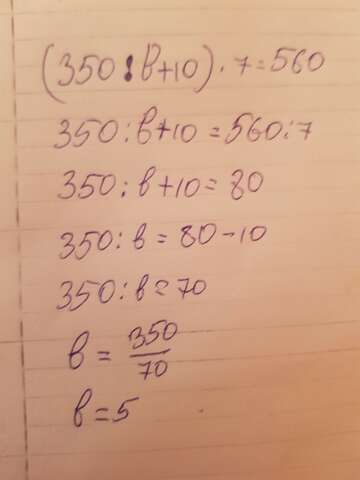 (350:в+10)·7=560
350:в+10=560:7
350:в+10=80
350:в=80-10
350:в=70
в=350/70
в=5